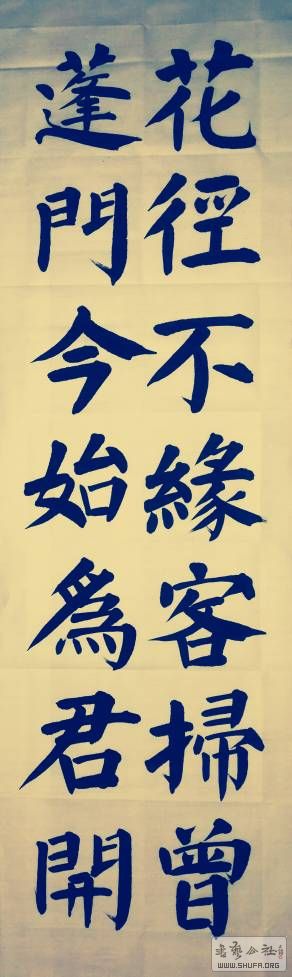 花徑不緣客掃曾
蓬門今始爲君開
WWW.SHUFA.ORG